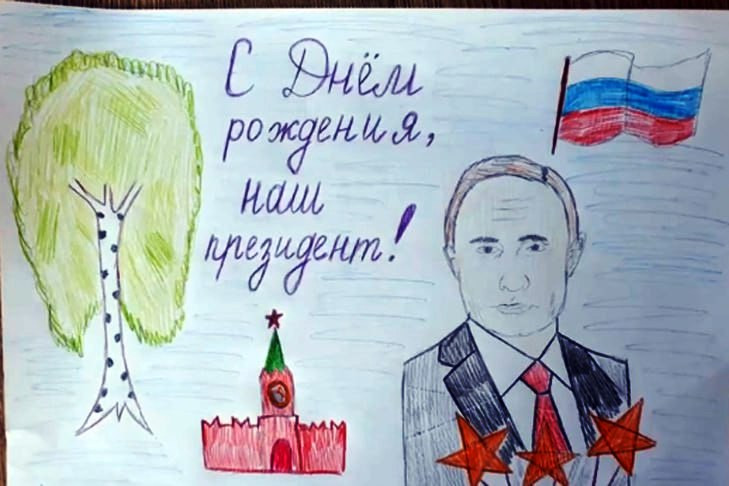 С Днём
рождения,
наш
президент!